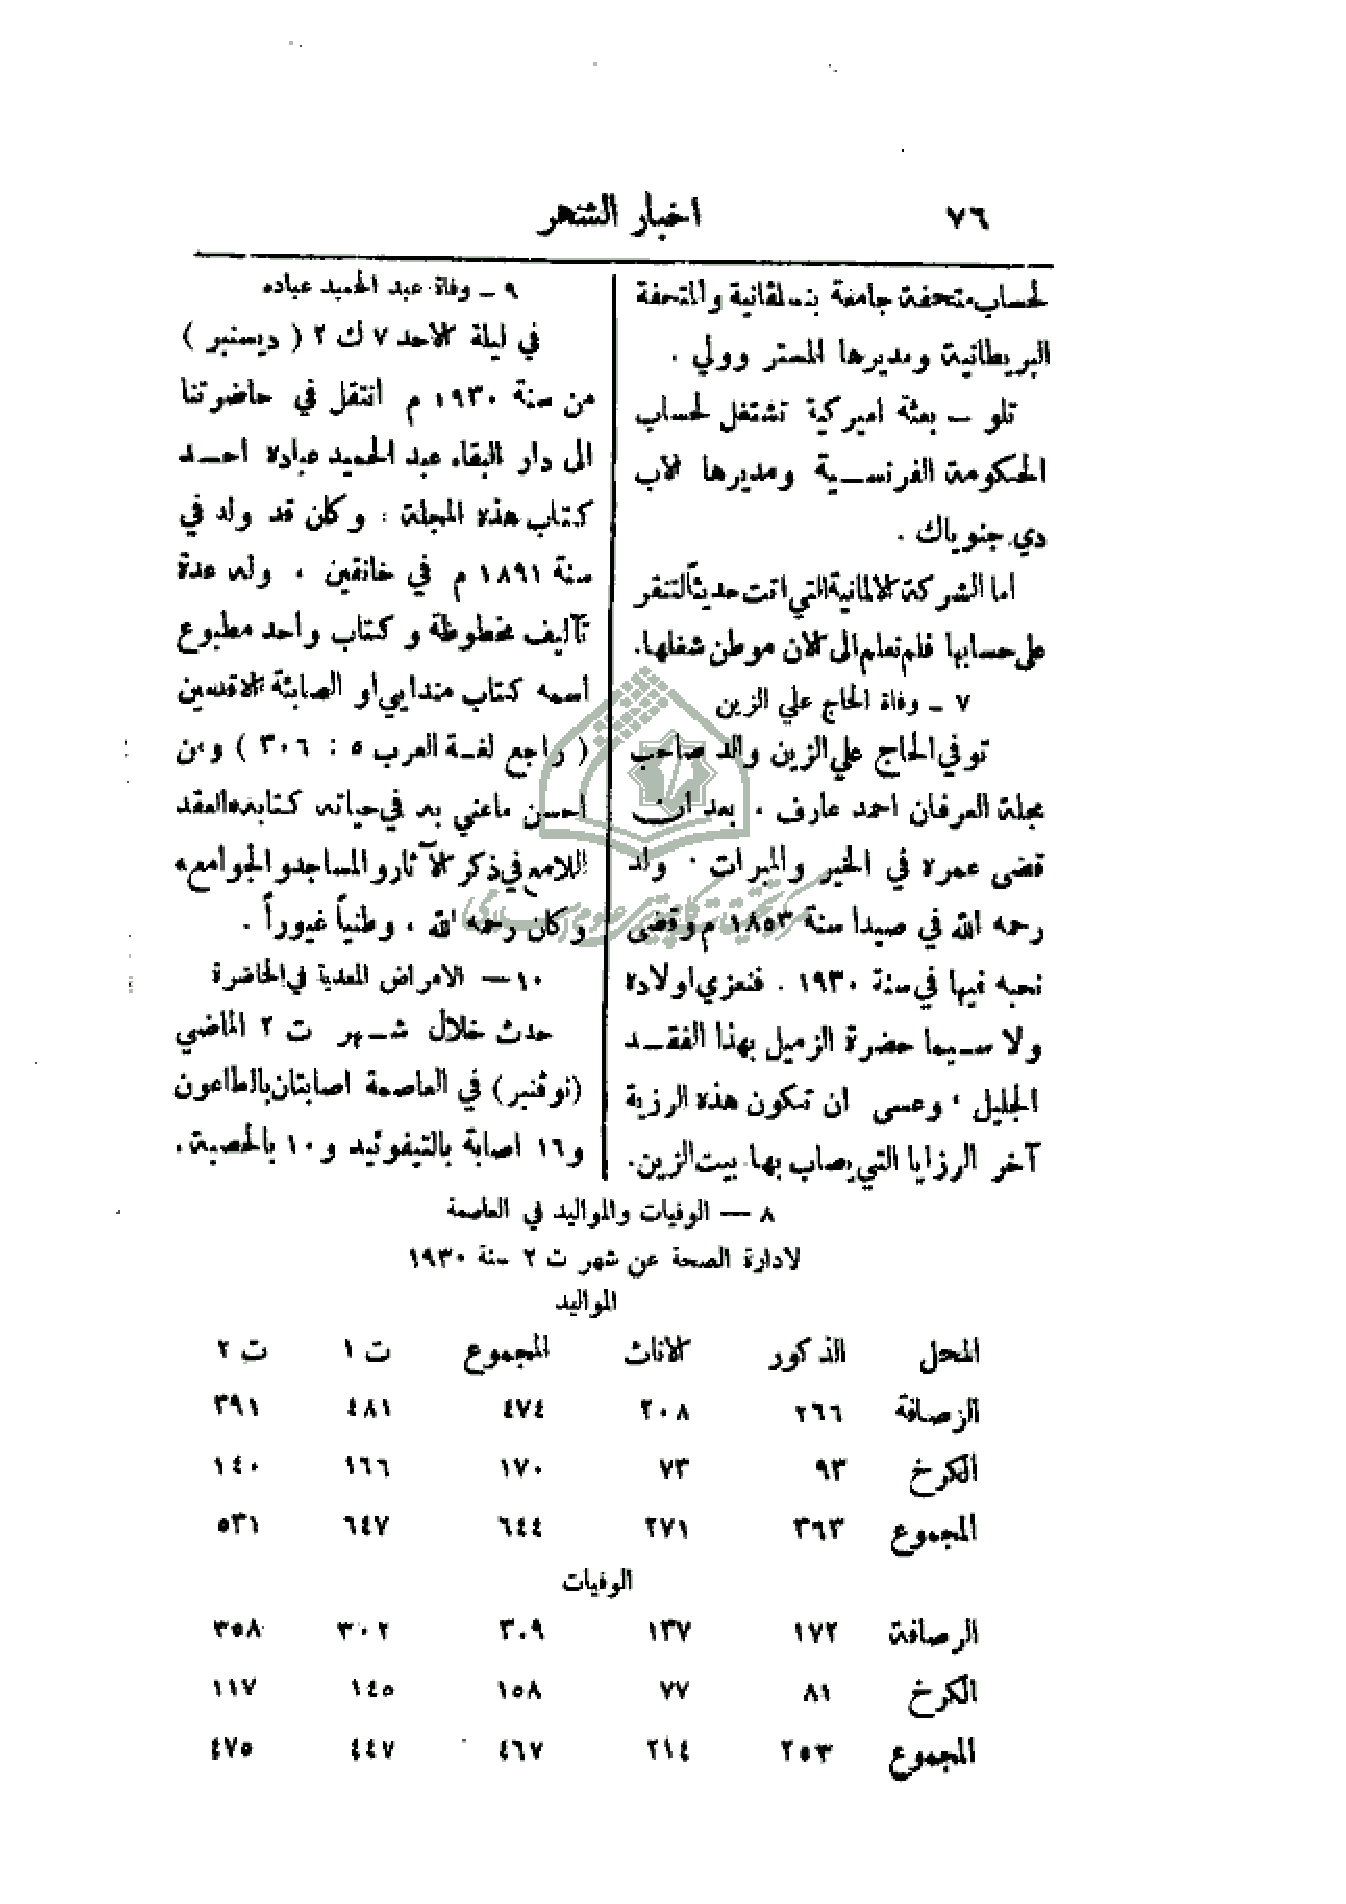 ٧٦
اخبار الشهر
لحساب متحفة جامعة بنسلڤانية والمتحفة
البريطانية ومديرها المستر وولي .
تلو ــ بعثة اميركية تشتغل لحساب
الحكومة الفرنســية ومديرها الاب
دي جنوياك .
اما الشركة الالمانية التي اتت حديثاً لتنقر
على حسابها فلم نعلم الى الآن موطن شغلها.
٧ ــ وفاة الحاج علي الزين
توفي الحاج علي الزين والد صاحب
مجلة العرفان احمد عارف ، بعد ان
قضى عمره في الخير والمبرات . ولد
رحمه الله في صيدا سنة ١٨٥٣ م وقضى
نحبه فيها في سنة ١٩٣٠ . فنعزي اولاده
ولا ســيما حضرة الزميل بهذا الفقــد
الجليل ، وعسى ان تكون هذه الرزية
آخر الرزايا التي يصاب بها بيت الزين.
٩ ــ وفاة عبد الحميد عباده
في ليلة الاحد ٧ ك ٢ ( ديسنبر )
من سنة ١٩٣٠ م انتقل في حاضرتنا
الى دار البقاء عبد الحميد عباده احــد
كتاب هذه المجلة ، وكان قد ولد في
سنة ١٨٩١ م في خانقين ، وله عدة
تآليف مخطوطة و كتاب واحد مطبوع
اسمه كتاب مندايي او الصابئة الاقدمين
( راجع لغــة العرب ٥ : ٣٠٦ ) ومن
احسن ماعني به في حياته كتابه «العقد
اللامع في ذكر الآثار والمساجد والجوامع»
وكان رحمه الله ، وطنياً غيوراً .
١٠ ــ الامراض المعدية في الحاضرة
حدث خلال شــهر ت ٢ الماضي
(نوڤنبر) في العاصمة اصابتان بالطاعون
و١٦ اصابة بالتيفوئيد و١٠ بالحصبة.
٨ ــ الوفيات والمواليد في العاصمة
لادارة الصحة عن شهر ت ٢ سنة ١٩٣٠
المواليد
المحل الذكور الاناث المجموع ت ١ ت ٢
الرصافة ٢٦٦ ٢٠٨ ٤٧٤ ٤٨١ ٣٩١
الكرخ ٩٣ ٧٣ ١٧٠ ١٦٦ ١٤٠
المجموع ٣٦٣ ٢٧١ ٦٤٤ ٦٤٧ ٥٣١
الوفيات
الرصافة ١٧٢ ١٣٧ ٣٠٩ ٣٠٢ ٣٥٨
الكرخ ٨١ ٧٧ ١٥٨ ١٤٥ ١١٧
المجموع ٢٥٣ ٢١٤ ٤٦٧ ٤٤٧ ٤٧٥